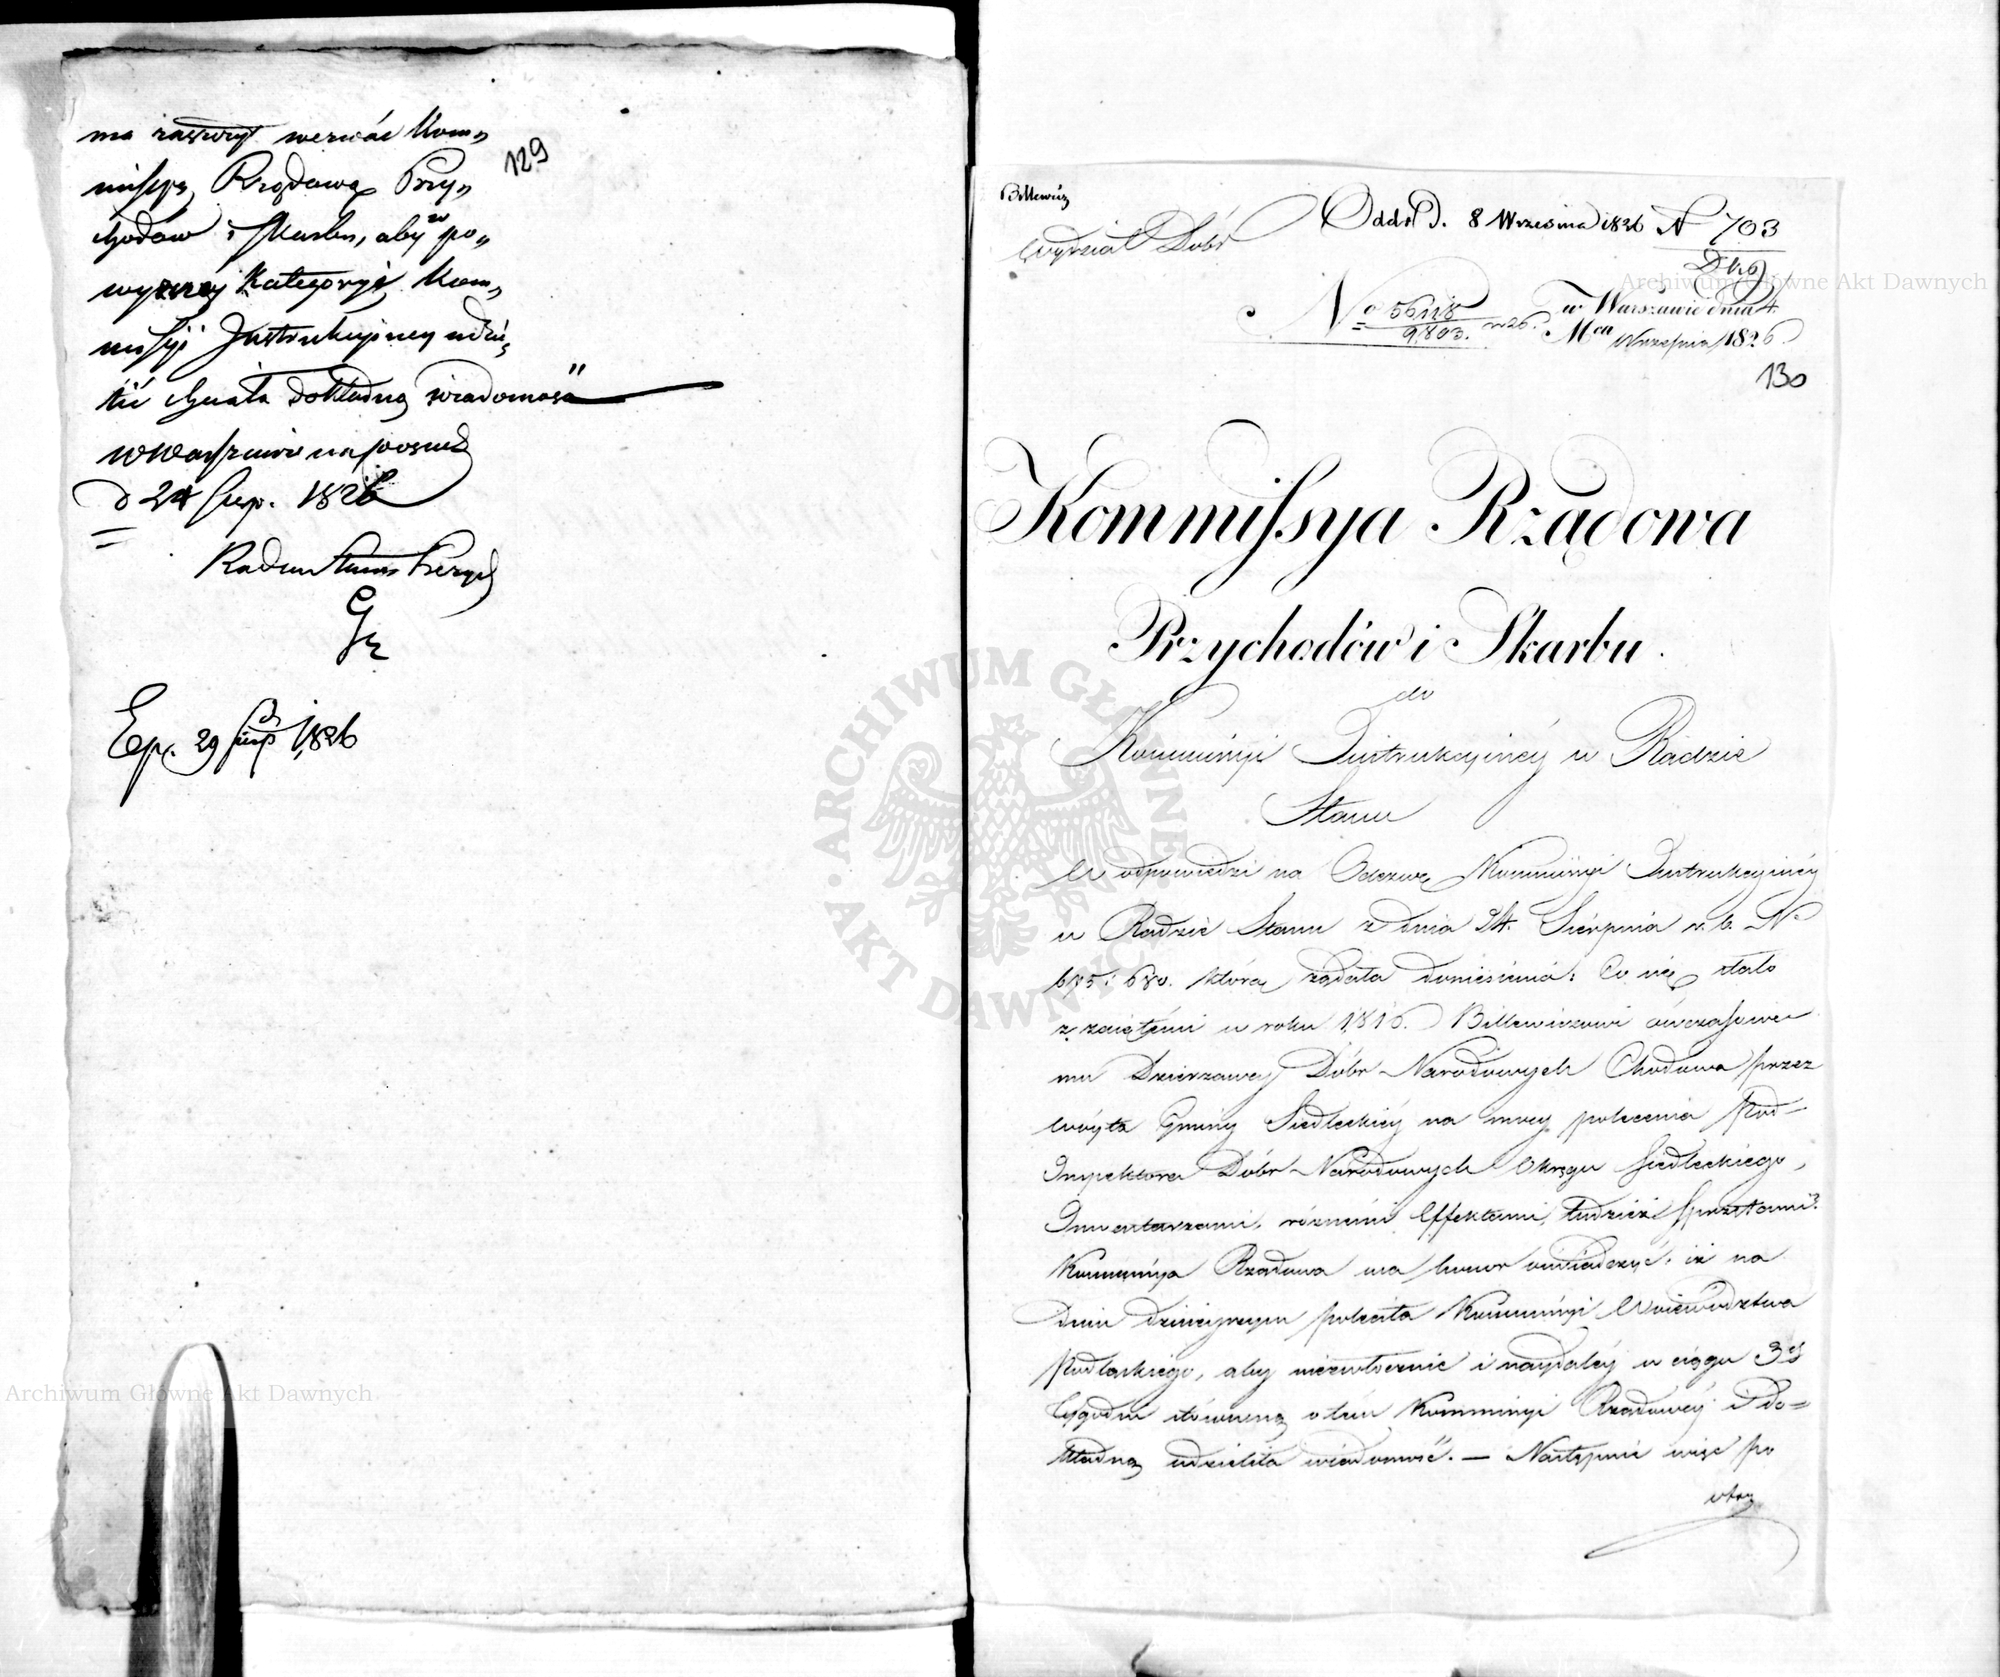 ma zaszczyt wezwać Kom„
missyę Rządową Przy„
chodów i Skarbu, aby w po„
wyższey Kategoryi Kom„
missyi Instrukcyiney udzie„
lić chciała dokładną wiadomość
w Warszawie na posied.
d 24 Sierp. 1826
Radca Stanu
Exp. 29 Sierp 1826
129
Billewicz
Wydział Dóbr
Odda. D. 8 Września 1826 N 703
No 56118
9,803.
w Warszawie dnia 4.
Mca Września 1826
130
Kommissya Rządowa
Przychodów i Skarbu.
do
Kommissyi Instrukcyinéy w Radzie
Stanu
W odpowiedzi na Odezwę Kommissyi Instrukcyinéy
w Radzie Stanu z dnia 24. Sierpnia r. b. No
675 i 680. którą żądała doniesienia: Co się stało
z zaiętémi w roku 1816. Billewiczowi ówczasowe
mu Dzierżawcy Dóbr Narodowych Chodowa przez
Wóyta Gminy Siedleckiéy na mocy polecenia Pod-
Inspektora Dóbr Narodowych Okręgu Siedleckiego,
Inwentarzami, różnémi Effektami, tudzież Sprzętami?
Kommissya Rządowa ma honor oświadczyć, iż na
dniu dzisieyszym poleciła Kommissyi Woiewództwa
Podlaskiego, aby niezwłocznie i naydaléy w ciągu 3ch
tygodni stosowną o tém Kommissyi Rządowéy i do=
kładną udzieliła wiadomość. — Następnie więc po
otrzy
Archiwum Główne Akt Dawnych
Archiwum Główne Akt Dawnych
ARCHIWUM GŁÓWNE
AKT DAWNYCH